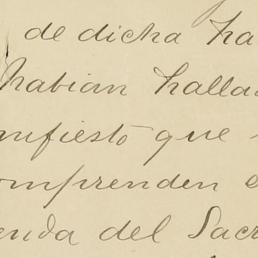 de dicha ha
habian halla
nifiesto que
omprenden e
enda del Sacr